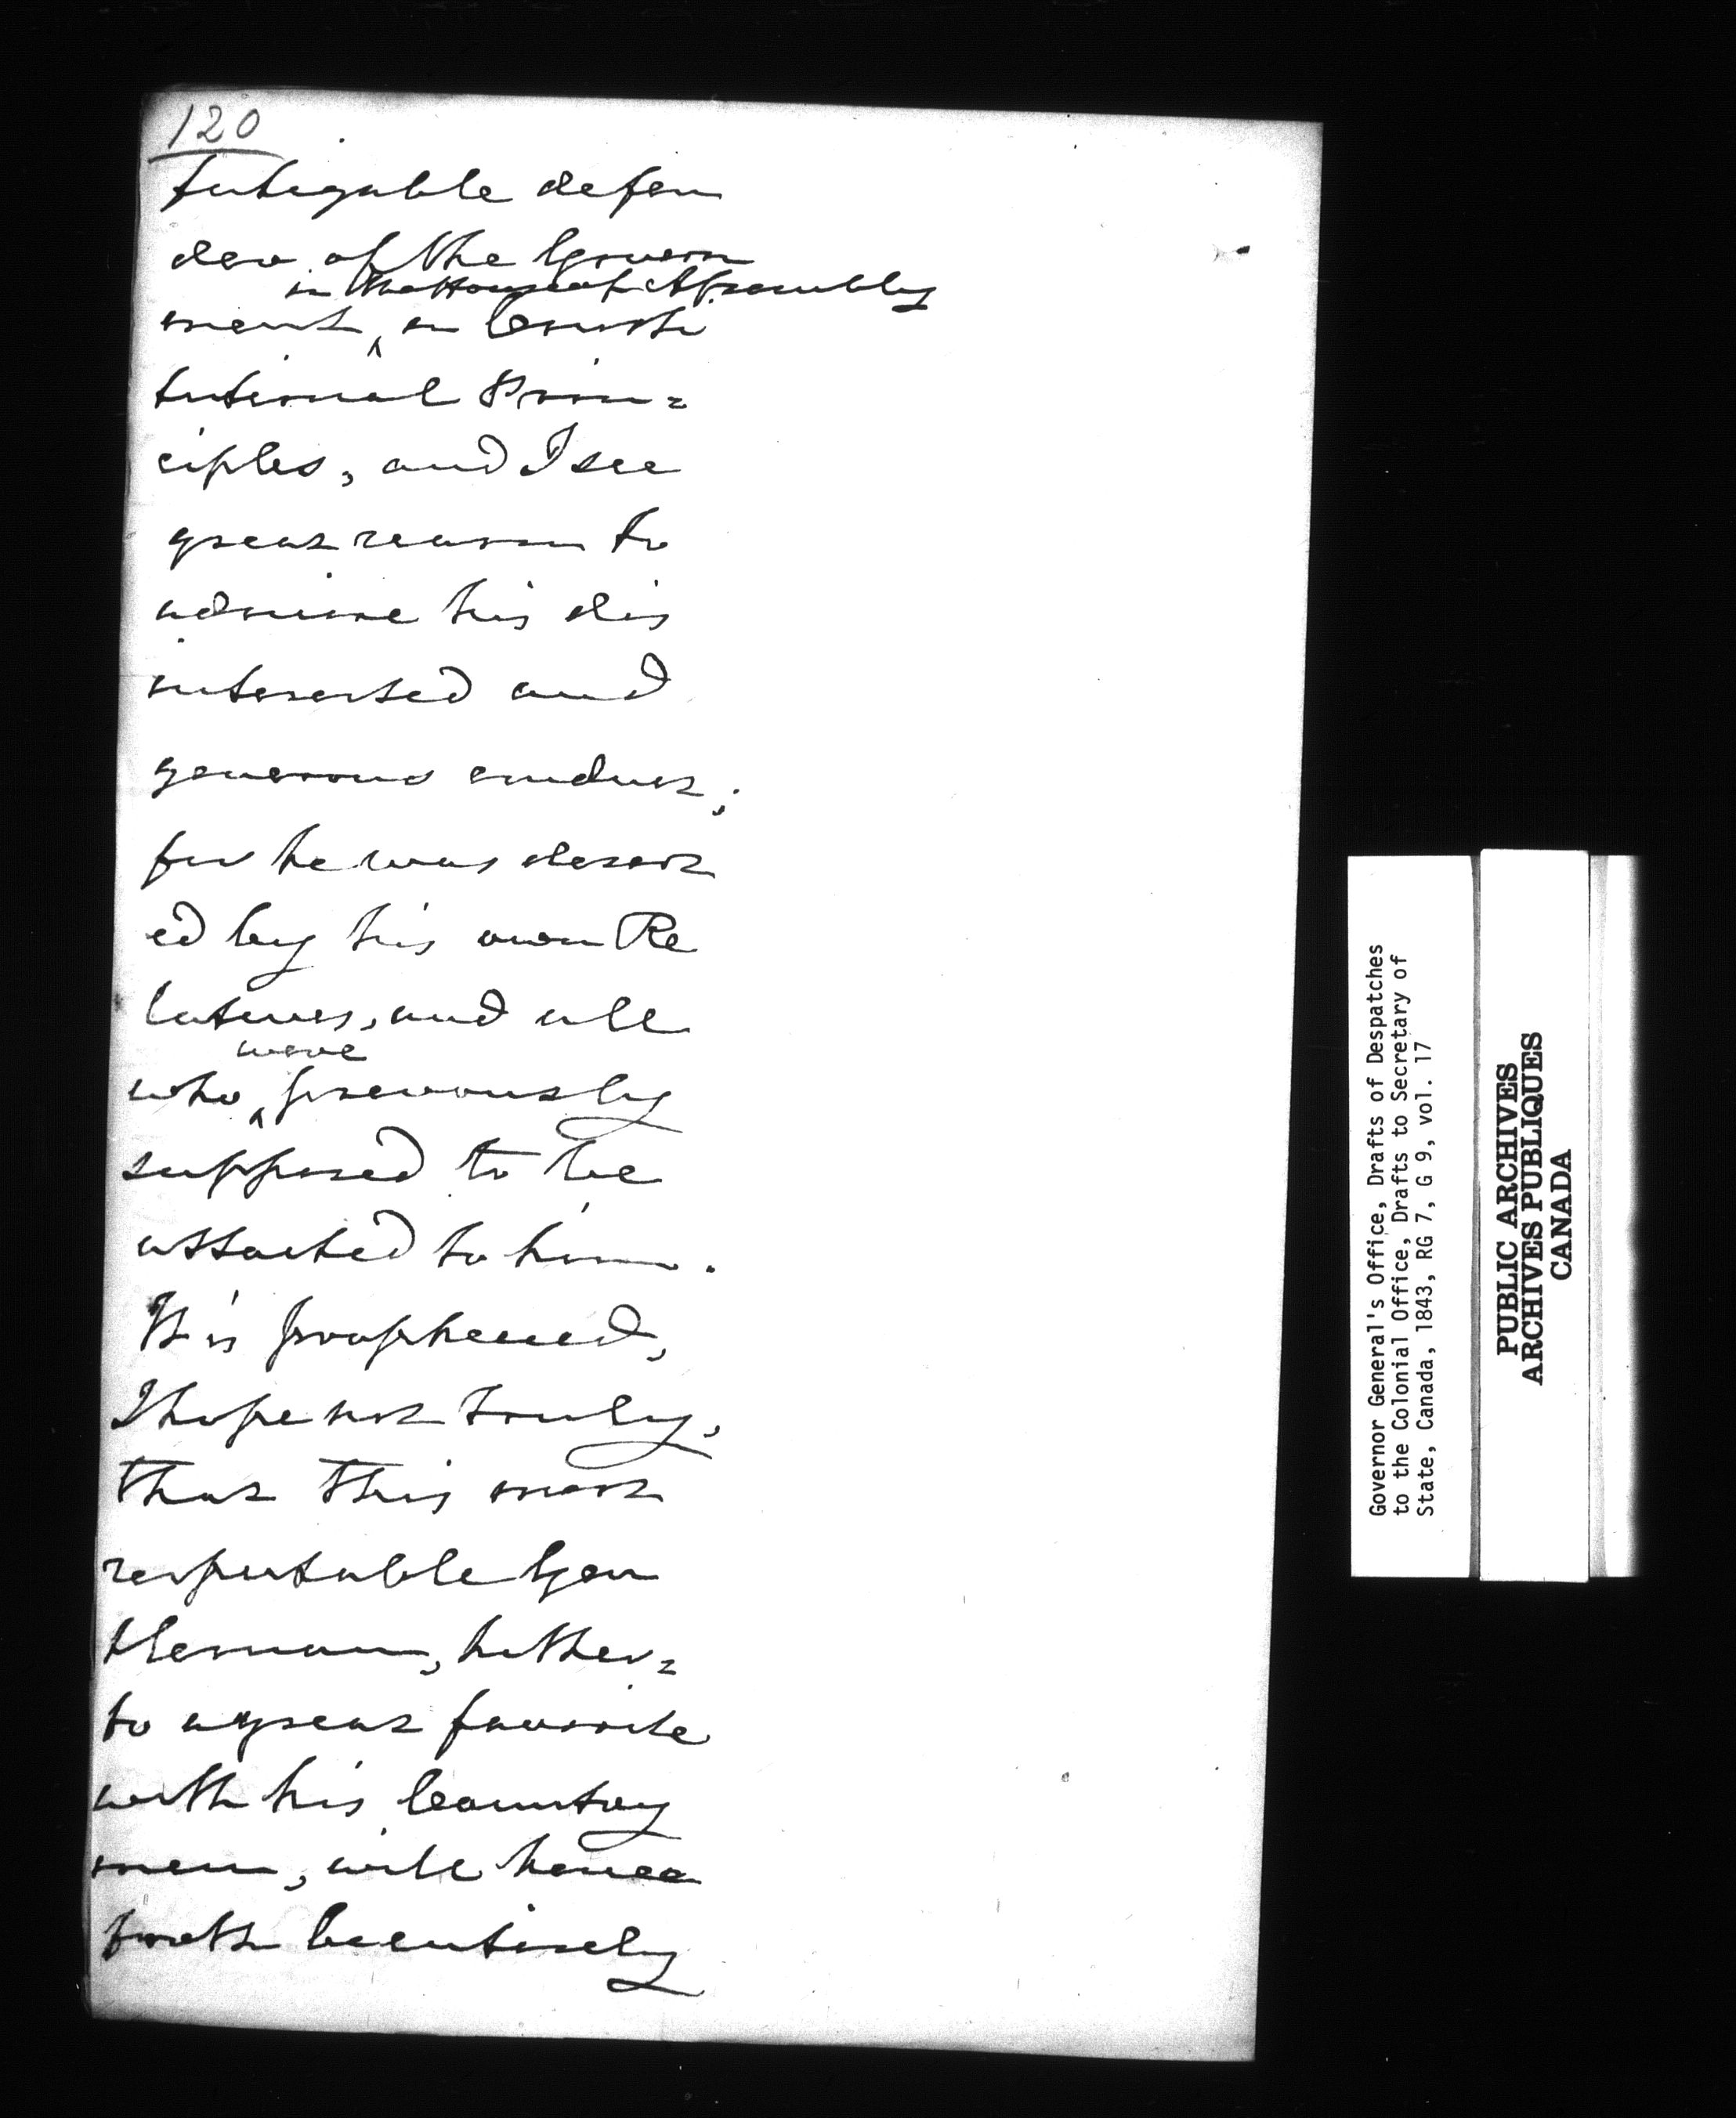 120
fatigable defen
der of the Govern
in the House of Assembly
ment, on Consti
tutional Prin=
ciples, and I see
great reason to
admire his dis
interested and
generous conduct;
for he was desert
ed by his own Re
latives, and all
were
who previously
supposed to be
attached to him.
It is prophecied,
I hope not truly,
that this most
respectable Gen
tleman, hither=
to a great favorite
with his Country
men, will hence
forth be entirely
Governor General's Office, Drafts of Despatches
to the Colonial Office, Drafts to Secretary of
State, Canada, 1843, RG 7, G 9, vol. 17
PUBLIC ARCHIVES
ARCHIVES PUBLIQUES
CANADA